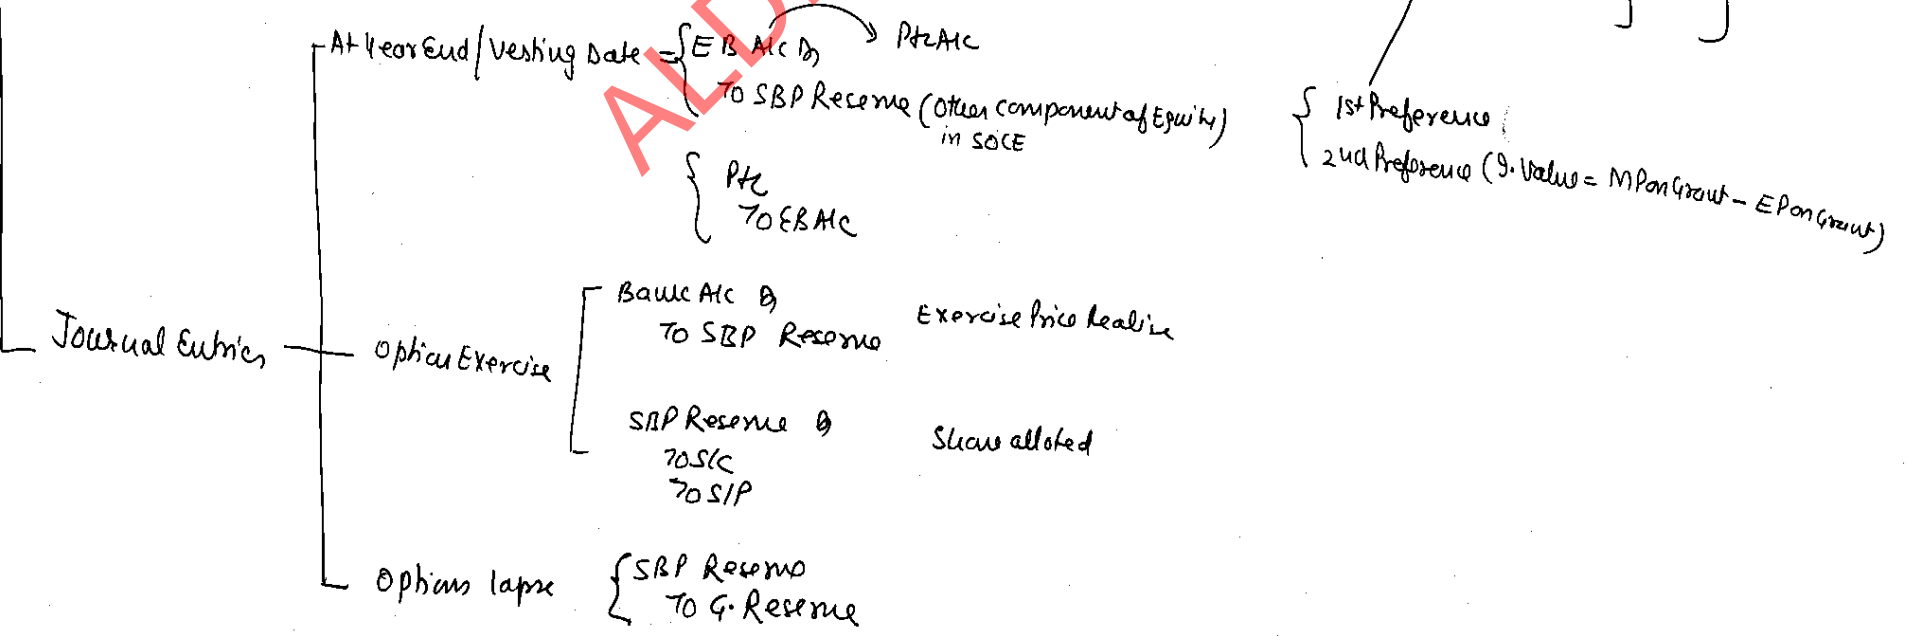 At Year End/Vesting Date = EB A/c Dr
P&L A/c
To SBP Reserve (Other component of Equity)
in SOCE
P&L
To EB A/c
1st Preference
2nd Preference (I. Value = MP on Grant - EP on Grant)
Journal Entries
Option Exercise
Bank A/c Dr
To SBP Reserve
Exercise Price Realise
SBP Reserve Dr
To S/C
To S/P
Share alloted
Options lapse
SBP Reserve
To G. Reserve
ALD